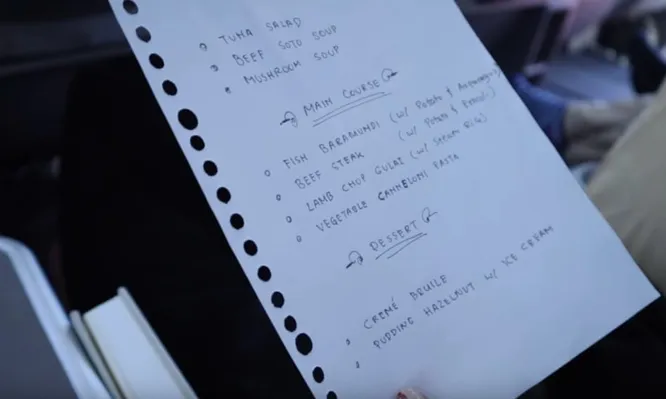 TUNA SALAD
BEEF SOTO SOUP
MUSHROOM SOUP
MAIN COURSE
FISH BARAMUNDI (w/ Potato & Asparagus)
BEEF STEAK (w/ Potato &
LAMB CHOP GULAI (w/ Steam Rice)
VEGETABLE CANNELONI PASTA
DESSERT
CREMÉ BRUILE
PUDDING HAZELNUT w/ ICE CREAM